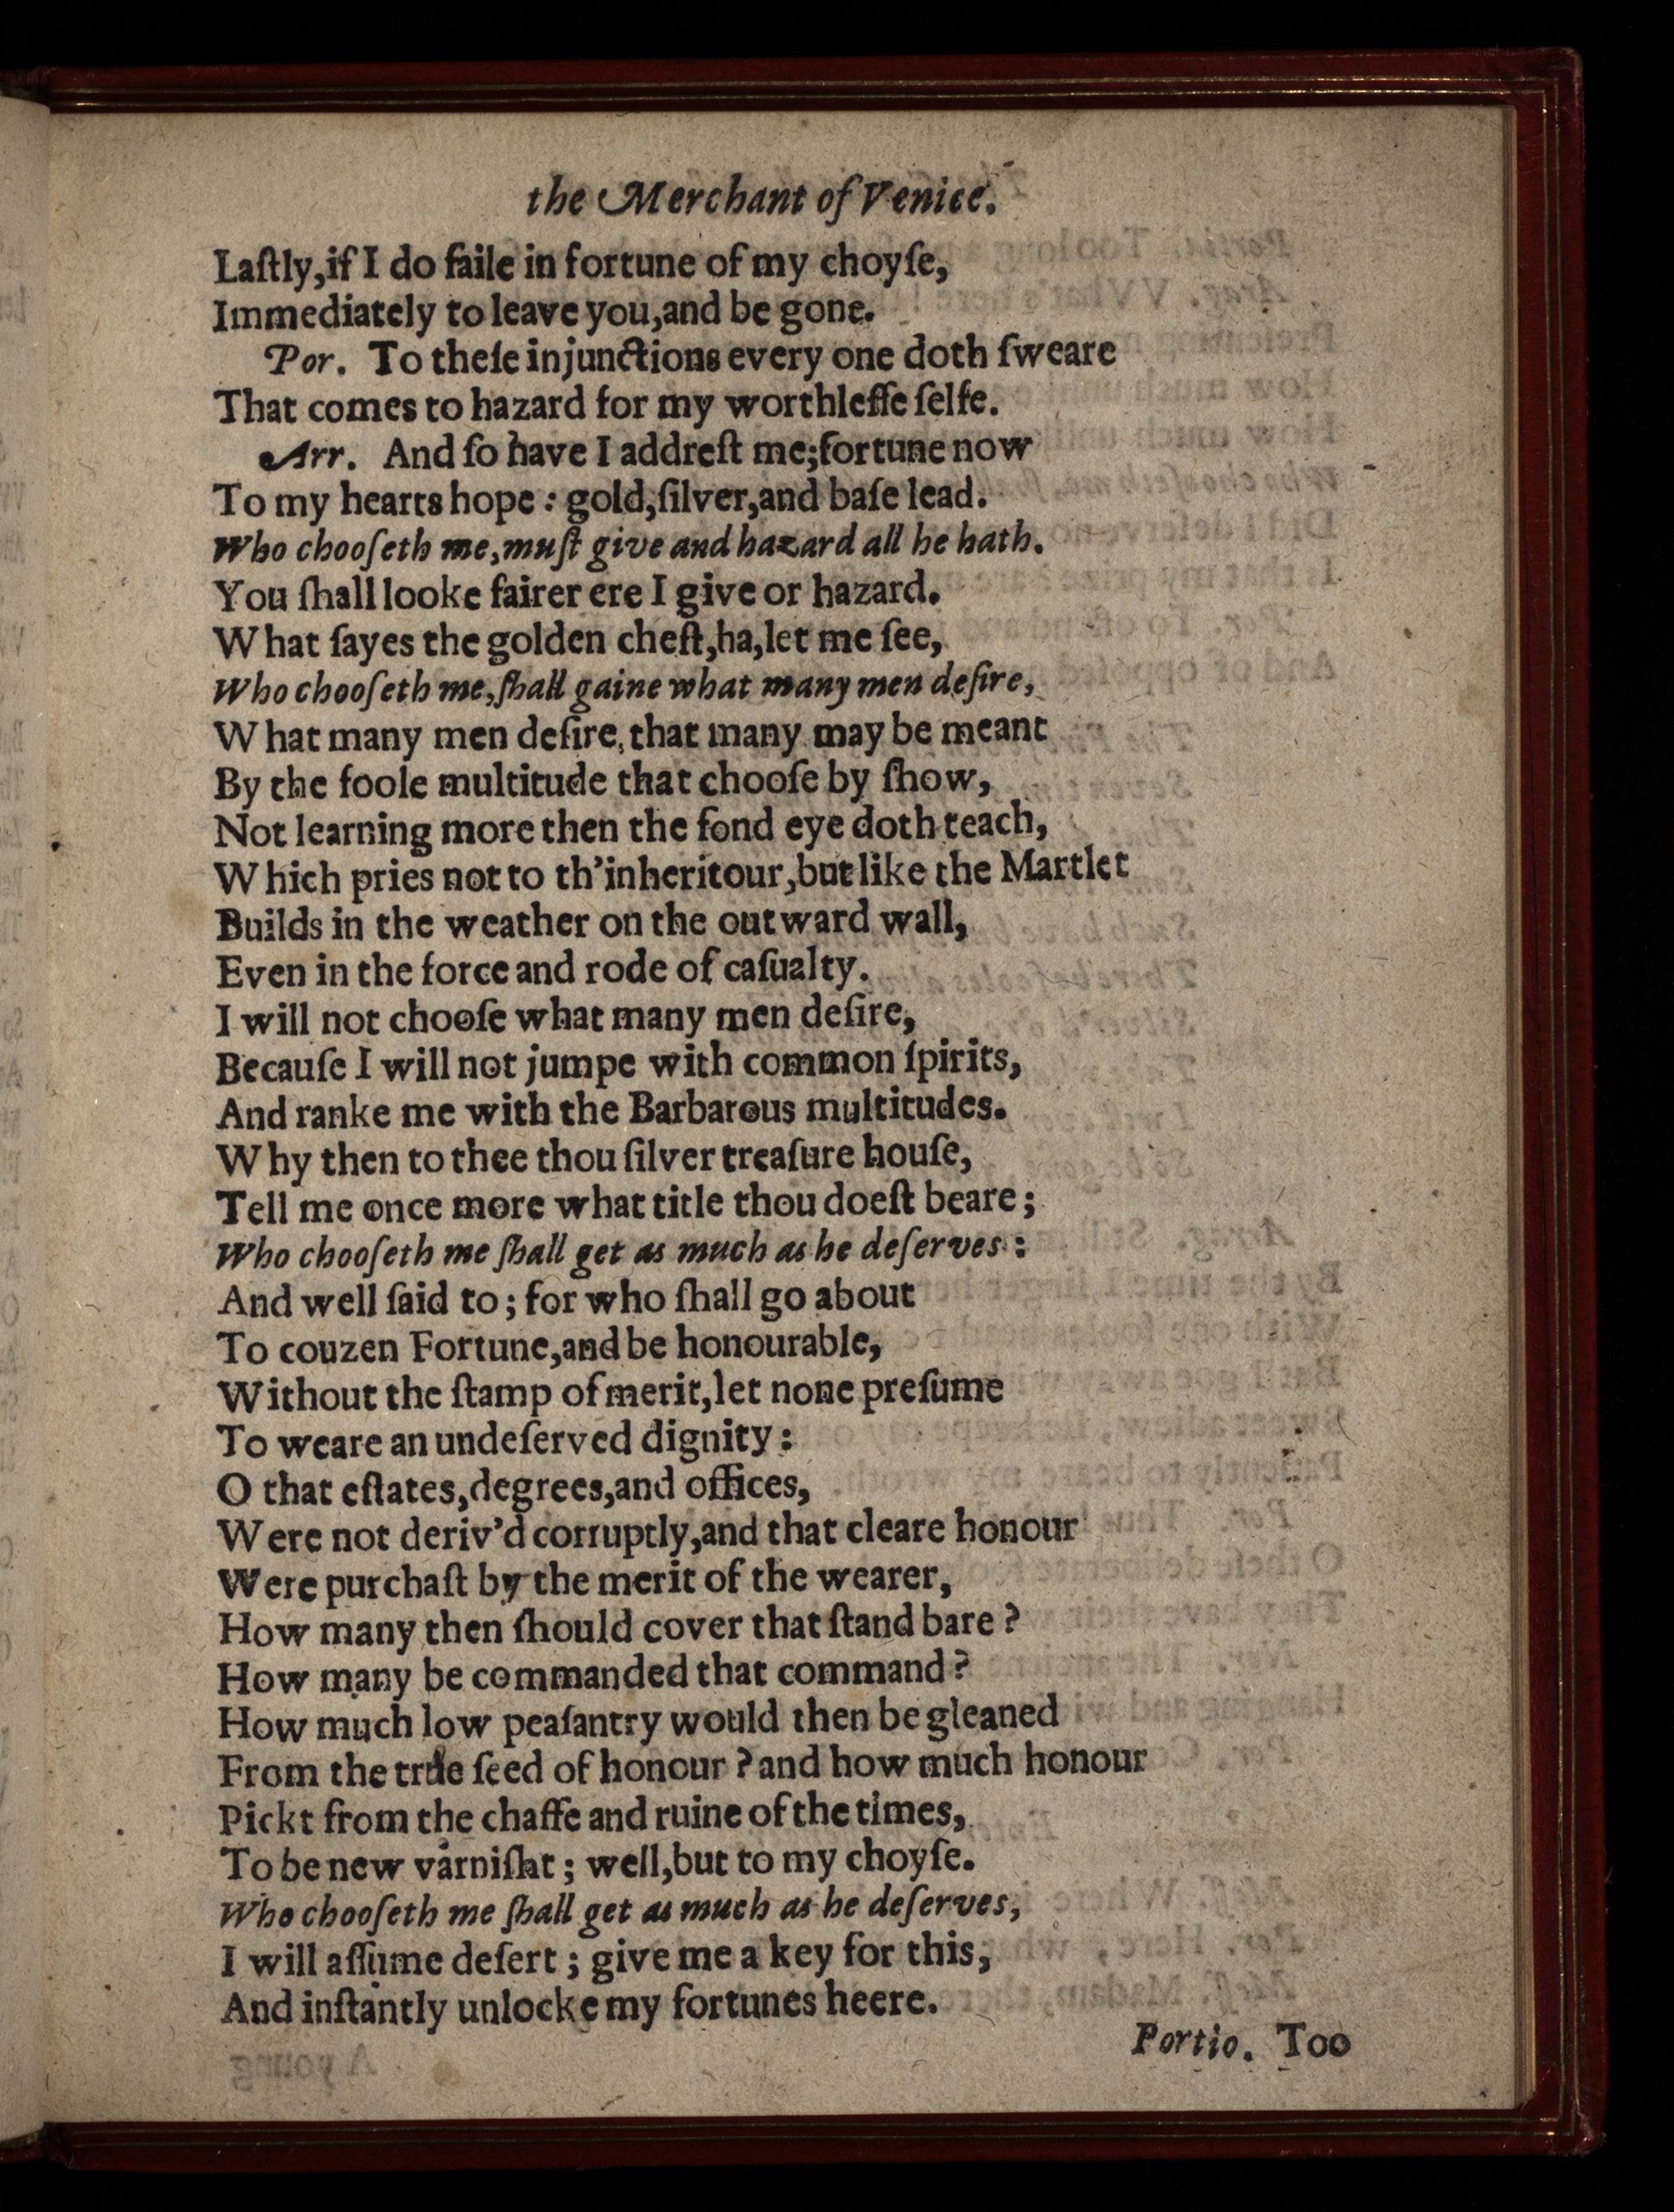 the Merchant of Venice.
Laſtly,if I do faile in fortune of my choyſe,
Immediately to leave you,and be gone.
Por. To theſe injunctions every one doth ſweare
That comes to hazard for my worthleſſe ſelfe.
Arr. And ſo have I addreſt me;fortune now
To my hearts hope : gold,ſilver,and baſe lead.
Who chooſeth me,muſt give and hazard all he hath.
You ſhall looke fairer ere I give or hazard.
What ſayes the golden cheſt,ha,let me ſee,
Who chooſeth me,ſhall gaine what many men deſire,
What many men deſire,that many may be meant
By the foole multitude that chooſe by ſhow,
Not learning more then the fond eye doth teach,
Which pries not to th'inheritour,but like the Martlet
Builds in the weather on the outward wall,
Even in the force and rode of caſualty.
I will not chooſe what many men deſire,
Becauſe I will not jumpe with common ſpirits,
And ranke me with the Barbarous multitudes.
Why then to thee thou ſilver treaſure houſe,
Tell me once more what title thou doeſt beare;
Who chooſeth me ſhall get as much as he deſerves :
And well ſaid to ; for who ſhall go about
To couzen Fortune,and be honourable,
Without the ſtamp of merit,let none preſume
To weare an undeſerved dignity :
O that eſtates,degrees,and offices,
Were not deriv'd corruptly,and that cleare honour
Were purchaſt by the merit of the wearer,
How many then ſhould cover that ſtand bare ?
How many be commanded that command ?
How much low peaſantry would then be gleaned
From the true ſeed of honour ? and how much honour
Pickt from the chaffe and ruine of the times,
To be new varniſht ; well,but to my choyſe.
Who chooſeth me ſhall get as much as he deſerves,
I will aſſume deſert ; give me a key for this,
And inſtantly unlocke my fortunes heere.
Portio. Too